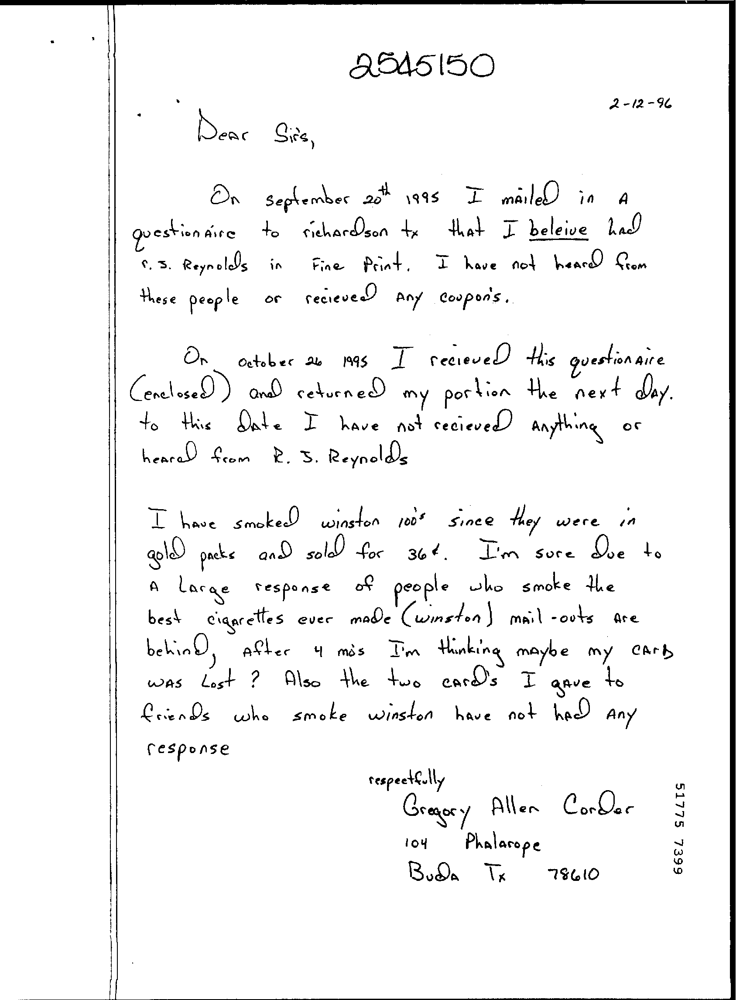 2545150
2-12-96
Dear Sir's,
On september 20th 1995 I mailed in A
questionAire to richardson tx that I beleive had
r. J. Reynolds in Fine Print. I have not heard from
these people or recieved Any coupon's.
On october 26 1995 I recieved this questionAire
(enclosed) and returned my portion the next day.
to this Date I have not recieved Anything or
heard from R. J. Reynolds
I have smoked winston 100's since they were in
gold packs and sold for 36¢. I'm sure Due to
A Large response of people who smoke the
best cigarettes ever made (winston) mail-outs Are
behind, After 4 mo's I'm thinking maybe my cArd
wAs Lost? Also the two cArd's I gAve to
friends who smoke winston have not had Any
response
respectfully
Gregory Allen Corder
104 Phalarope
Buda Tx 78610
51775 7399